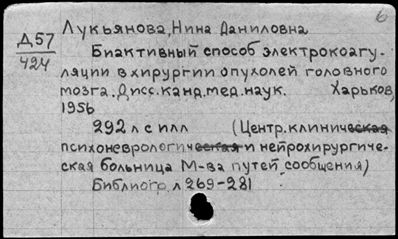 6
Лукьянова, Нина Даниловна
Д57
424
Биактивный способ электрокоагу-
ляции в хирургии опухолей головного
мозга. Дисс. канд. мед. наук. Харьков,
1956
292 л с илл (Центр. клиническая
психоневрологическая и нейрохирургиче-
ская больница М-ва путей сообщения)
Библиогр. л 269-281